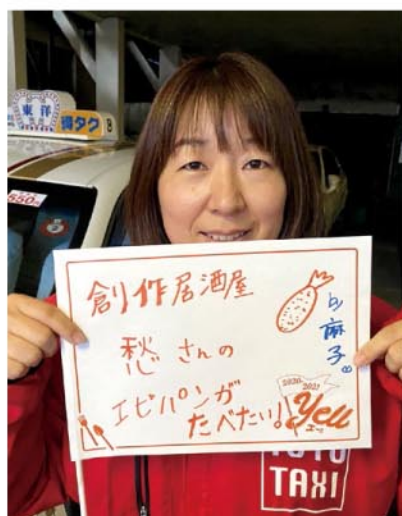 東洋
構タク 8
550円
創作居酒屋
愁さんの
エビパンが
たべたい!
by 麻子
2020.2021
Yell
エール
TOYO
TAXI